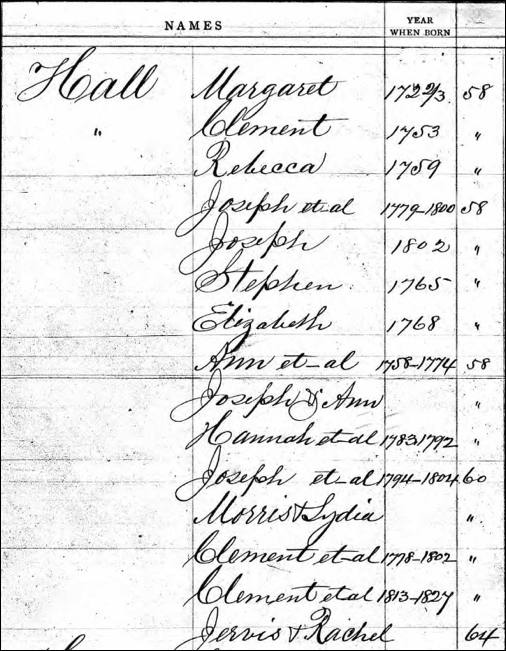 NAMES YEAR WHEN BORN
Hall Margaret 1722/3 58
" Clement 1753 "
Rebecca 1759 "
Joseph et al 1779-1800 58
Joseph 1802 "
Stephen 1765 "
Elizabeth 1768 "
Ann et al 1758-1774 58
Joseph & Ann "
Hannah et al 1783 1792 "
Joseph et al 1794-1804 60
Morris & Lydia "
Clement et al 1778-1802 "
Clement et al 1813-1827 "
Jervis & Rachel 64